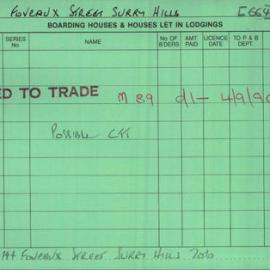 FOVEAUX STREET SURRY HILLS
BOARDING HOUSES & HOUSES LET IN LODGINGS
Series No
NAME
No OF B'DERS
AMT. PAID
LICENCE DATE
TO P & B DEPT.
ED TO TRADE M 89 d/- 4/9/90
POSSIBLE
FOVEAUX STREET SURRY HILLS 2010